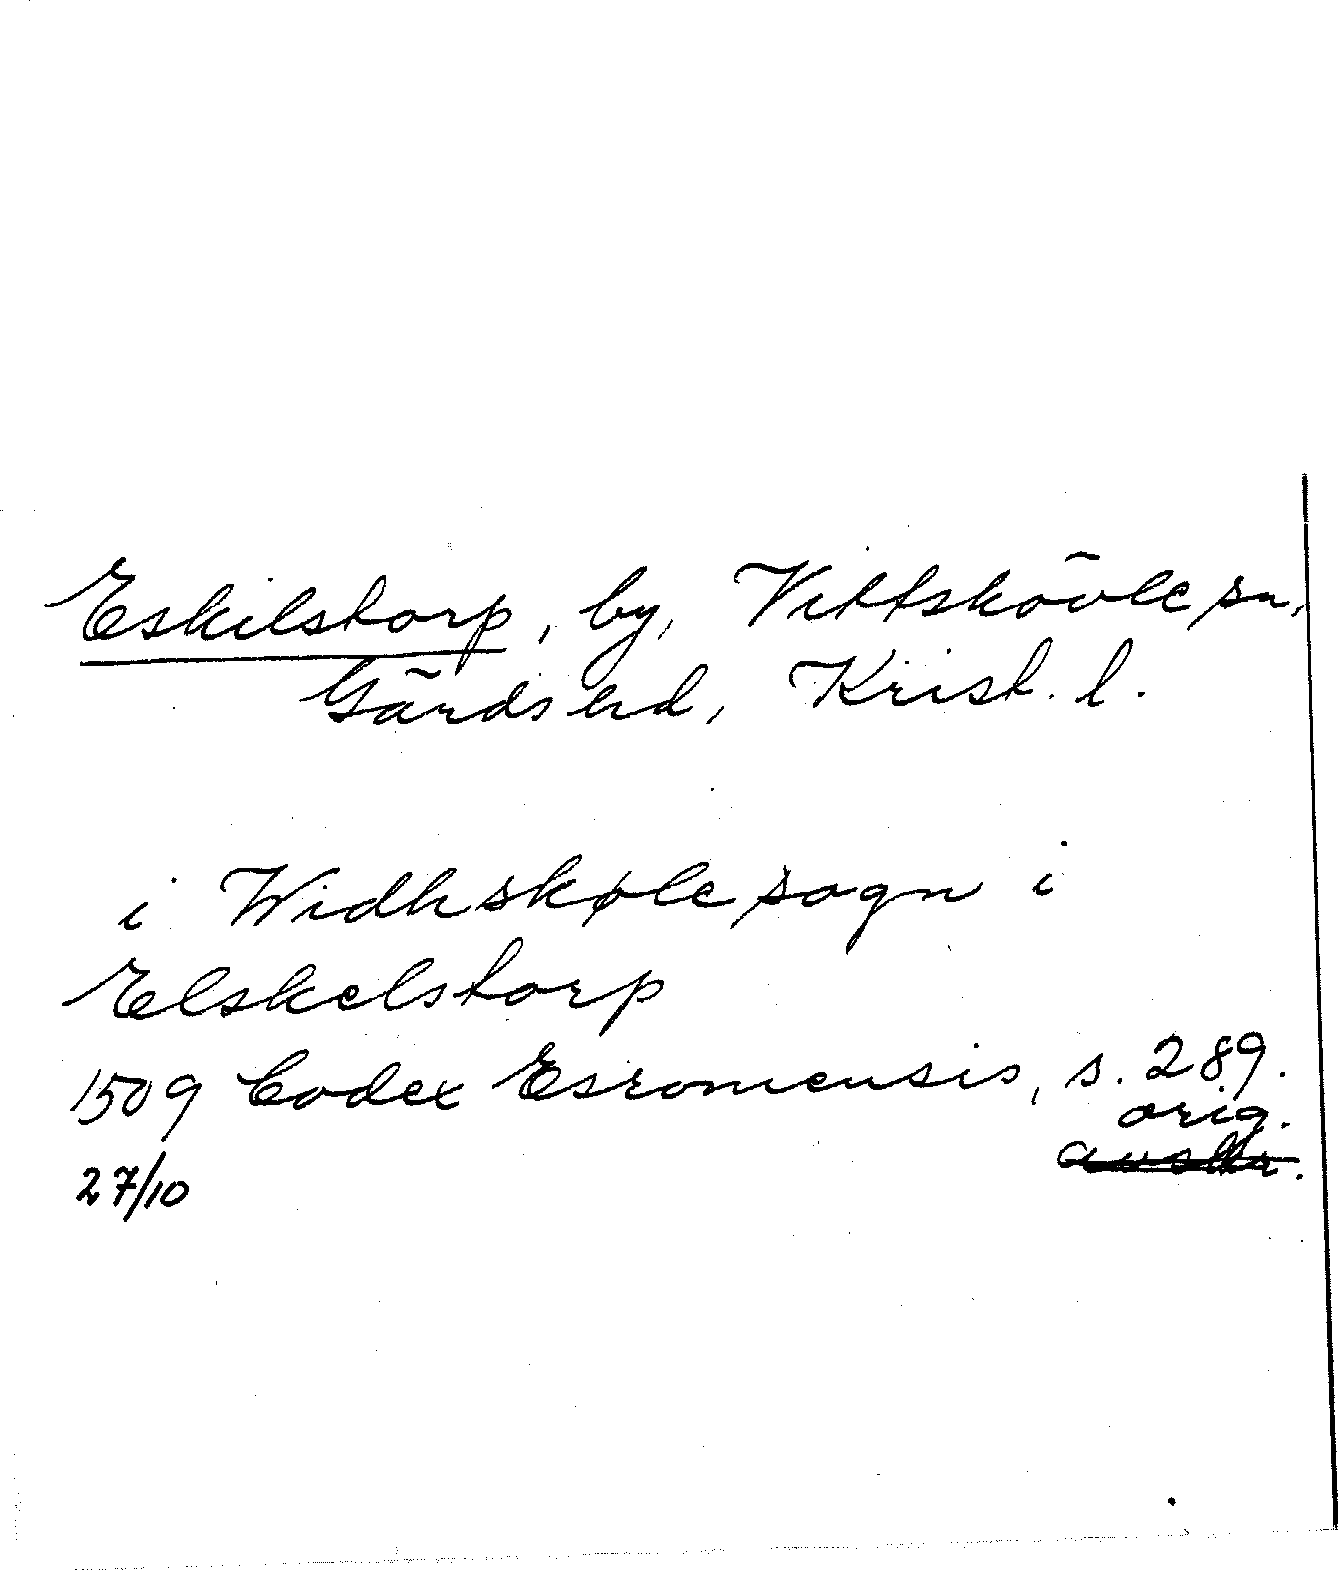 Eskilstorp, by, Vittskövle sn,
Gärds hd, Krist. l.
i Widhskøle sogn i
Elskelstorp
1509 Codex Esromensis, s. 289.
orig.
27/10